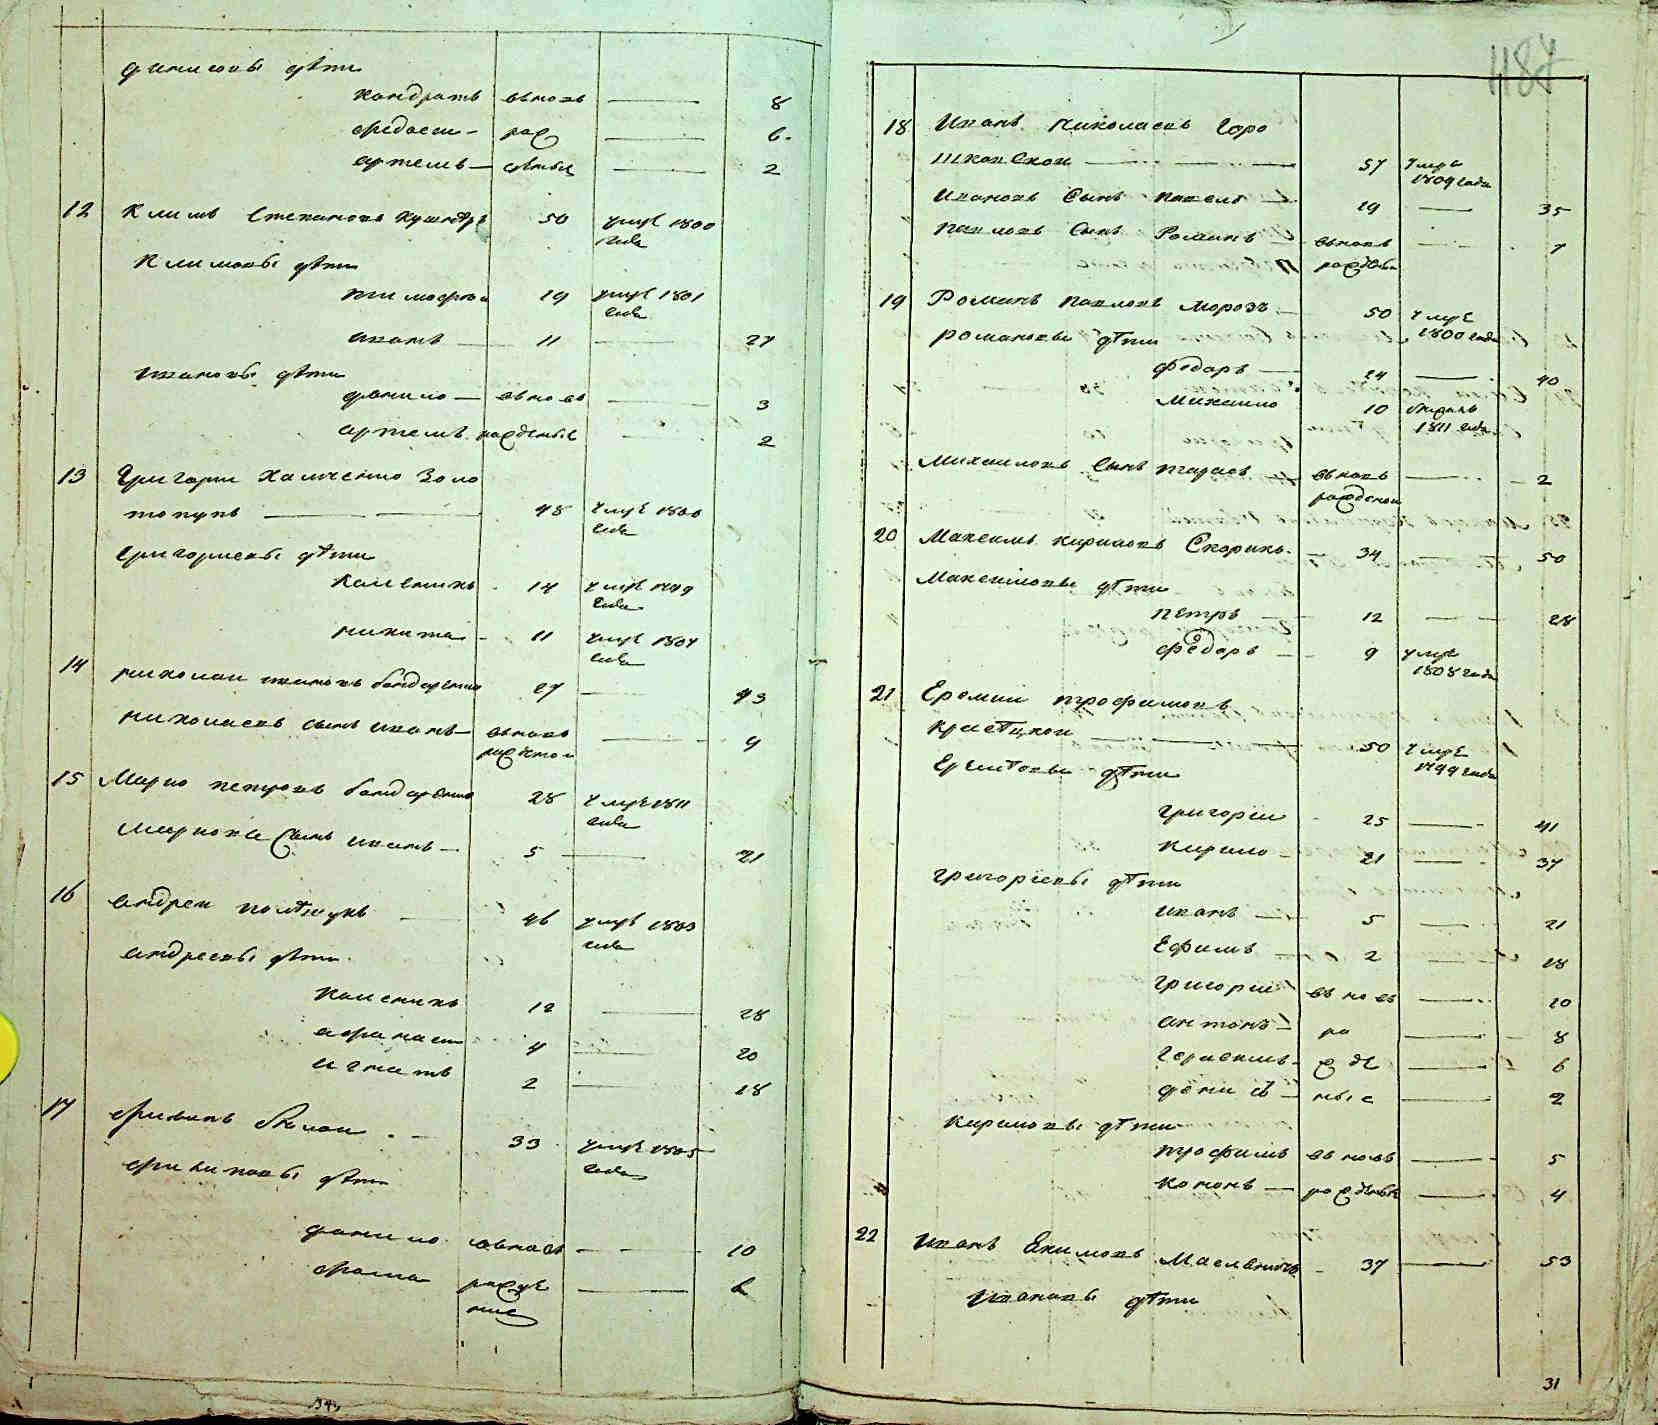 дѣти
Кондратъ вновь 8
рож 6
артемъ 2
12 Климъ Степановъ 50 умре 1800 года
Климовы дѣти
тимофеи 19 умре 1801 года
иванъ 11 27
ивановы дѣти
данило вновь 3
артемъ рожденные 2
13 Григории Золо
48 умре 1800 года
Григориевы дѣти
14 умре 1799 года
никита 11 умре 1807 года
14 николаи ивановъ бондаренко 27 43
николаевъ сынъ иванъ вновь рожденои 4
15 Марко петровъ бондаренко 28 умре 1811 года
марковъ Сынъ иванъ 5 21
16 андреи 46 умре 1803 года
андреевы дѣти
12 28
афанаси 4 20
игнатъ 2 18
17 33 умре 1805 года
филиповы дѣти
данило вновь 10
фома рожде ные 6
1187
18 Иванъ николаевъ Горо
шковскои 57 умре 1809 года
Ивановъ Сынъ павелъ 19 35
павловъ Сынъ Романъ вновь рожденъ 7
19 Романъ павловъ морозъ 50 умре 1800 года
романовы дѣти
федоръ 24 40
михаило 10 1811 года
михаиловъ Сынъ вновь рожденои 2
20 Максимъ кириловъ 34 50
Максимовы дѣти
петръ 12 28
федоръ 9 умре 1808 года
21 Еремии трофимовъ
50 умре 1799 года
дѣти
григории 25 41
кирило 21 37
григориевы дѣти
иванъ 5 21
Ефимъ 2 18
григории вновь 10
антонъ ро 8
герасимъ жде 6
денисъ ные 2
кириловы дѣти
трофимъ вновь 5
кононъ рожденые 4
22 Иванъ Екимовъ 37 53
Ивановы дѣти
31